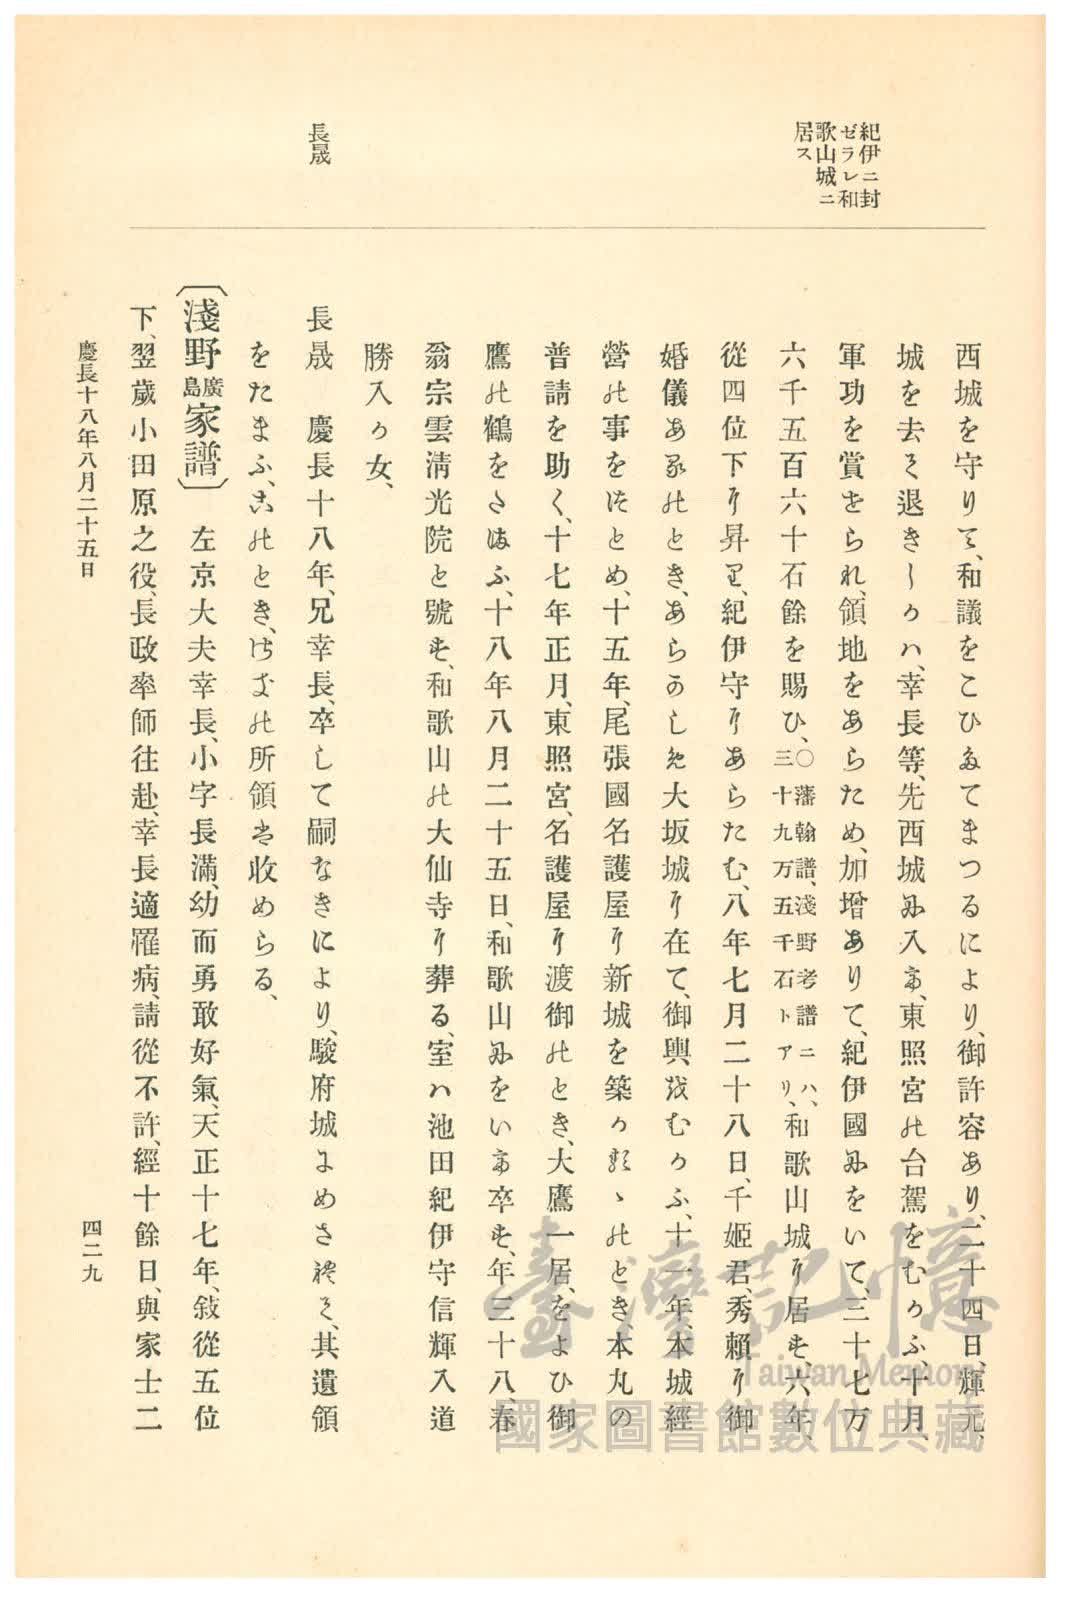 紀伊ニ封
ゼラレ和
歌山城ニ
居ス
長晟
西城を守りて、和議をこひたてまつるにより、御許容あり、二十四日、輝元、
城を去て退きしかハ、幸長等、先西城に入て、東照宮の台駕をむかふ、十月、
軍功を賞せられ、領地をあらため、加增ありて、紀伊國にをいて、三十七万
六千五百六十石餘を賜ひ、〇藩翰譜、淺野考譜ニハ、三十九万五千石トアリ、和歌山城に居す、六年、
從四位下に昇り、紀伊守にあらたむ、八年七月二十八日、千姬君、秀賴に御
婚儀あるのとき、あらかしめ大坂城に在て、御輿をむかふ、十一年、本城經
營の事をつとめ、十五年、尾張國名護屋に新城を築かるゝのとき、本丸の
普請を助く、十七年正月、東照宮、名護屋に渡御のとき、大鷹一居、をよひ御
鷹の鶴をたまふ、十八年八月二十五日、和歌山にをいて卒す、年三十八、春
翁宗雲淸光院と號す、和歌山の大仙寺に葬る、室ハ池田紀伊守信輝入道
勝入か女、
長晟　慶長十八年、兄幸長、卒して嗣なきにより、駿府城にめされて、其遺領
をたまふ、このとき、はしめの所領は收めらる、
〔淺野家譜〕廣島　左京大夫幸長、小字長滿、幼而勇敢好氣、天正十七年、敍從五位
下、翌歲小田原之役、長政率師往赴、幸長適罹病、請從不許、經十餘日、與家士二
慶長十八年八月二十五日
四二九
臺灣記憶
Taiwan Memory
國家圖書館數位典藏